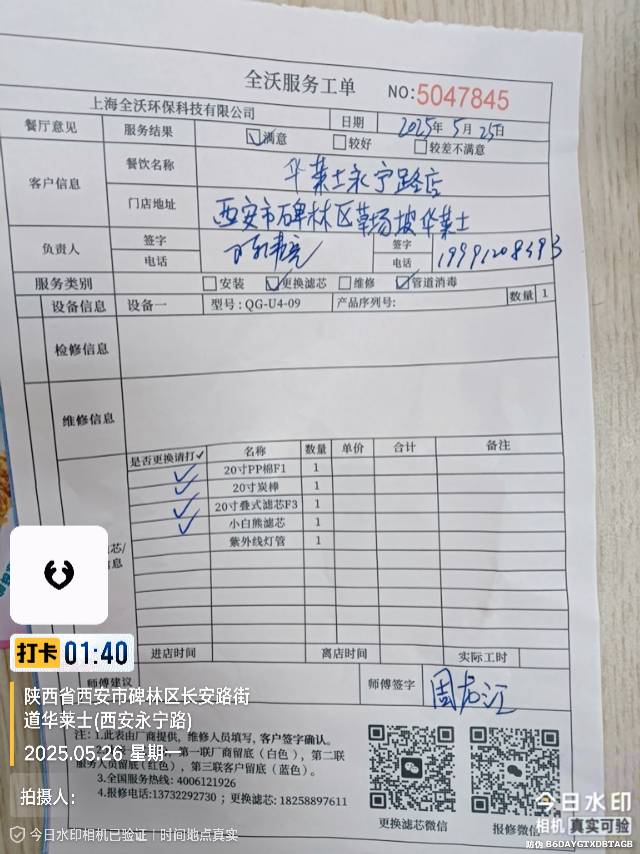 全沃服务工单
NO:5047845
上海全沃环保科技有限公司
日期 2025年5月25日
餐厅意见 服务结果 满意 较好 较差不满意
客户信息 餐饮名称 华莱士永宁路店
门店地址 西安市碑林区草场坡华莱士
负责人 签字 签字
电话 电话
服务类别 安装 更换滤芯 维修 管道消毒
设备信息 设备一 型号: QG-U4-09 产品序列号: 数量 1
检修信息
维修信息
是否更换请打✓ 名称 数量 单价 合计 备注
✓ 20寸PP棉F1 1
✓ 20寸炭棒 1
✓ 20寸叠式滤芯F3 1
✓ 小白熊滤芯 1
紫外线灯管 1
芯/
息
进店时间 离店时间 实际工时
师傅建议 师傅签字
注: 1.此表由厂商提供, 维修人员填写, 客户签字确认。
第一联厂商留底 (白色) , 第二联
服务人员留底(红色) , 第三联客户留底 (蓝色) 。
3.全国服务热线: 4006121926
4.报修电话:13732292730 ; 更换滤芯: 18258897611
更换滤芯微信 报修微信
打卡 01:40
陕西省西安市碑林区长安路街
道华莱士(西安永宁路)
2025.05.26 星期一
拍摄人:
今日水印相机已验证 | 时间地点真实
今日水印
相机 真实可验
防伪 B6DAYGTXDBTAGB